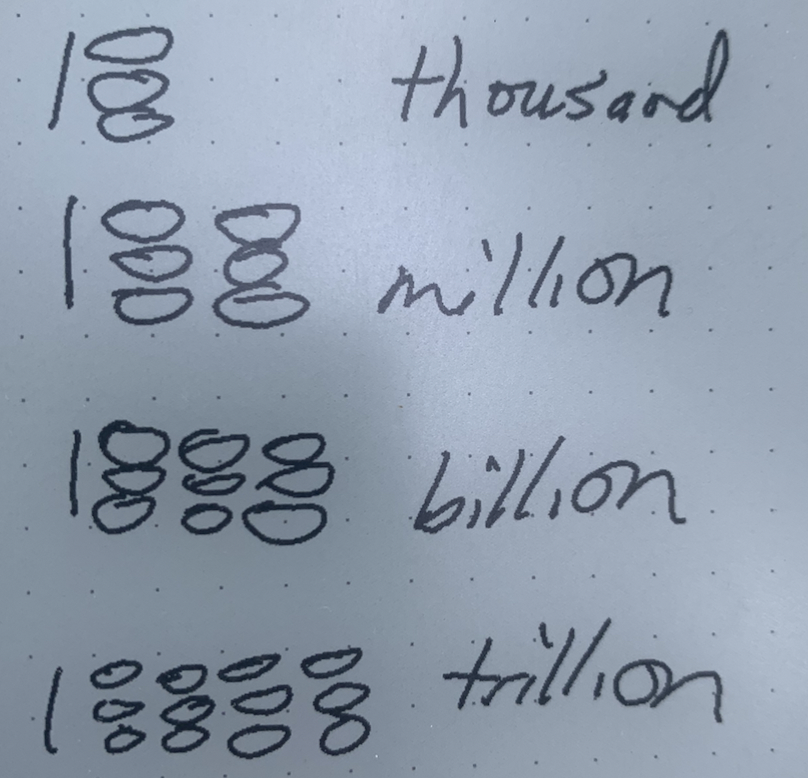 1000 thousand
1000000 million
1000000000 billion
1000000000000 trillion